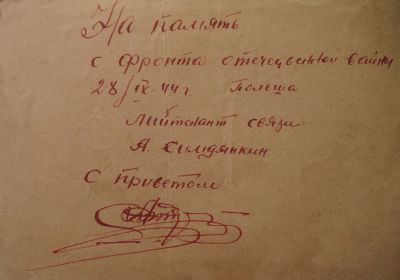 На память
с фронта отечецвиной войны
28/IX 44 г. Польша
Лийтенант связи
А. Симдянкин.
С приветом